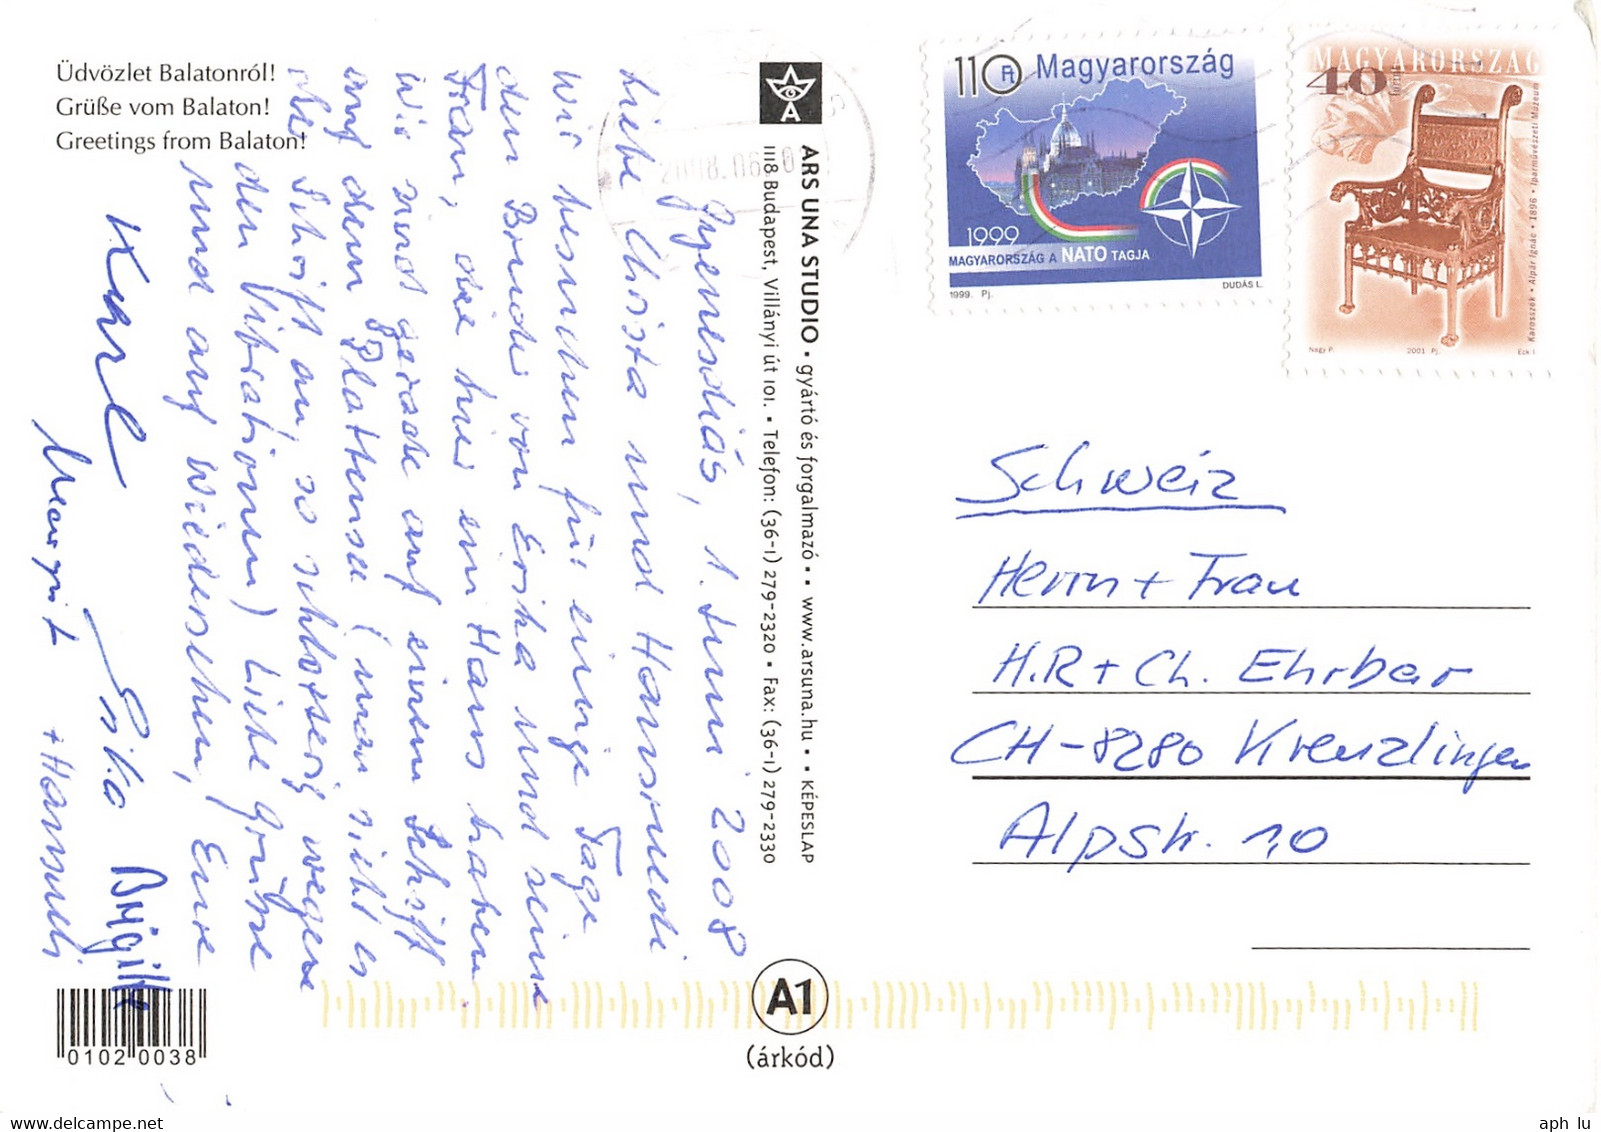 Üdvözlet Balatonról!
Grüße vom Balaton!
Greetings from Balaton!
Gyenesdiás, 1. Juni 2008
Liebe Christa und Hansruedi
Wir besuchen für einige Tage
den Bruder von Erika und seine
Frau, die hier ein Haus haben.
Wir sind gerade auf einem Schiff
auf dem Plattensee (man sieht es
der Schrift an, so schlotterig wegen
den Vibrationen) Liebe Grüsse
und auf Wiedersehen, Eure
Karl Erika Brigitte
Margrit + Hansueli
ARS UNA STUDIO • gyártó és forgalmazó • • www.arsuna.hu • • KÉPESLAP
1118 Budapest, Villányi út 101. • Telefon: (36-1) 279-2320 • Fax: (36-1) 279-2330
2008.06.
110 Ft Magyarország
1999
MAGYARORSZÁG A NATO TAGJA
1999. Pj.
DUDÁS L.
MAGYARORSZÁG
40
forint
Karosszék • Alpár Ignác • 1896 • Iparművészeti Múzeum
Nagy P. 2001 Pj. Eck I.
Schweiz
Herrn + Frau
H.R + Ch. Ehrbar
CH-8280 Kreuzlingen
Alpstr. 10
A1
(árkód)
0102 0038
aph lu